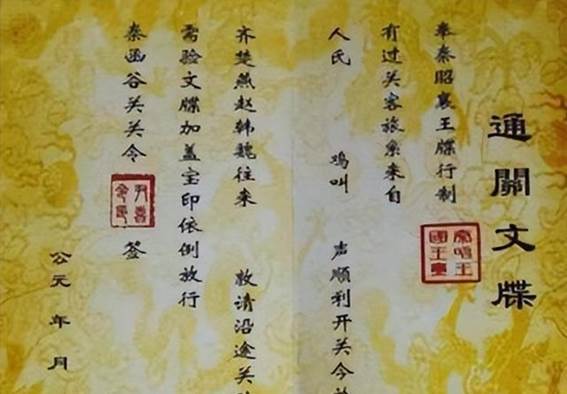 通關文牒
奉秦昭襄王牒行制
有过关客旅系来自
人氏 鸡叫 声顺利开关今
齐楚燕赵韩魏往来 敬请沿途关
需验文牒加盖宝印依例放行
秦函谷关关令 签
公元 年 月